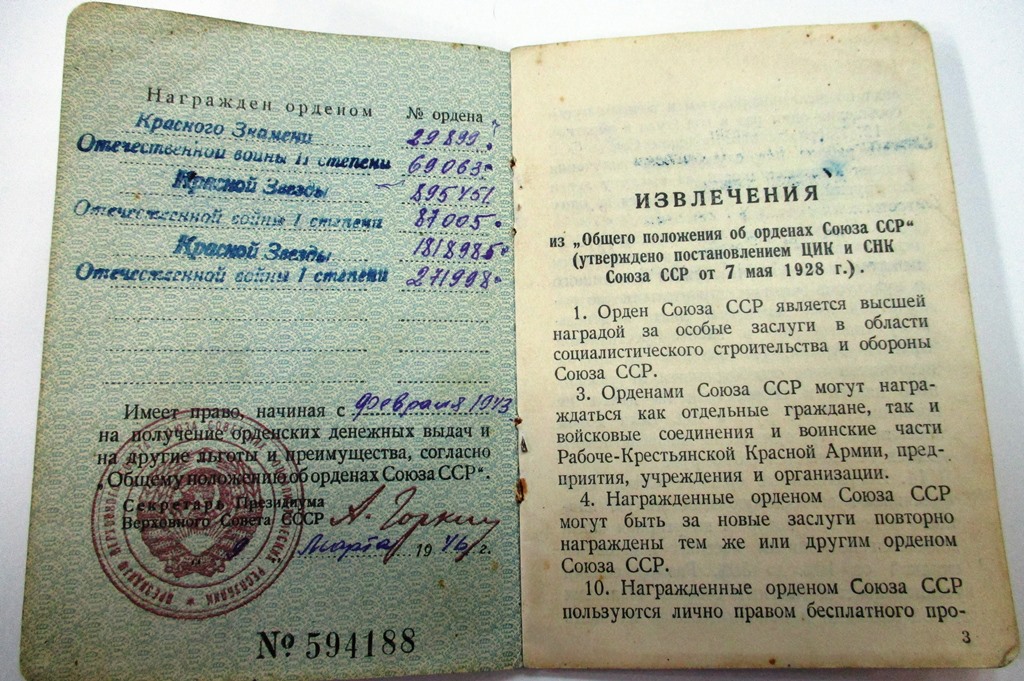 Награжден орденом № ордена
Красного Знамени 29899
Отечественной войны II степени 69063
Красной Звезды 895451
Отечественной войны I степени 87005
Красной Звезды 1818985
Отечественной войны I степени 271998
Имеет право, начиная с февраля 1943
на получение орденских денежных выдач и
на другие льготы и преимущества, согласно
„Общему положению об орденах Союза ССР“.
Секретарь Президиума
Верховного Совета СССР А. Горкин
Марта 1946 г.
№ 594188
ИЗВЛЕЧЕНИЯ
из „Общего положения об орденах Союза ССР“
(утверждено постановлением ЦИК и СНК
Союза ССР от 7 мая 1928 г.).
1. Орден Союза ССР является высшей
наградой за особые заслуги в области
социалистического строительства и обороны
Союза ССР.
3. Орденами Союза ССР могут награ-
ждаться как отдельные граждане, так и
войсковые соединения и воинские части
Рабоче-Крестьянской Красной Армии, пред-
приятия, учреждения и организации.
4. Награжденные орденом Союза ССР
могут быть за новые заслуги повторно
награждены тем же или другим орденом
Союза ССР.
10. Награжденные орденом Союза ССР
пользуются лично правом бесплатного про-
3